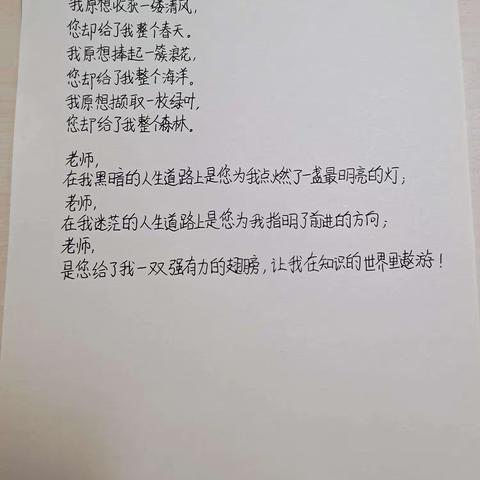 我原想收获一缕清风，
您却给了我整个春天。
我原想捧起一簇浪花，
您却给了我整个海洋。
我原想撷取一枚绿叶，
您却给了我整个森林。
老师，
在我黑暗的人生道路上是您为我点燃了一盏最明亮的灯；
老师，
在我迷茫的人生道路上是您为我指明了前进的方向；
老师，
是您给了我一双强有力的翅膀，让我在知识的世界里遨游！